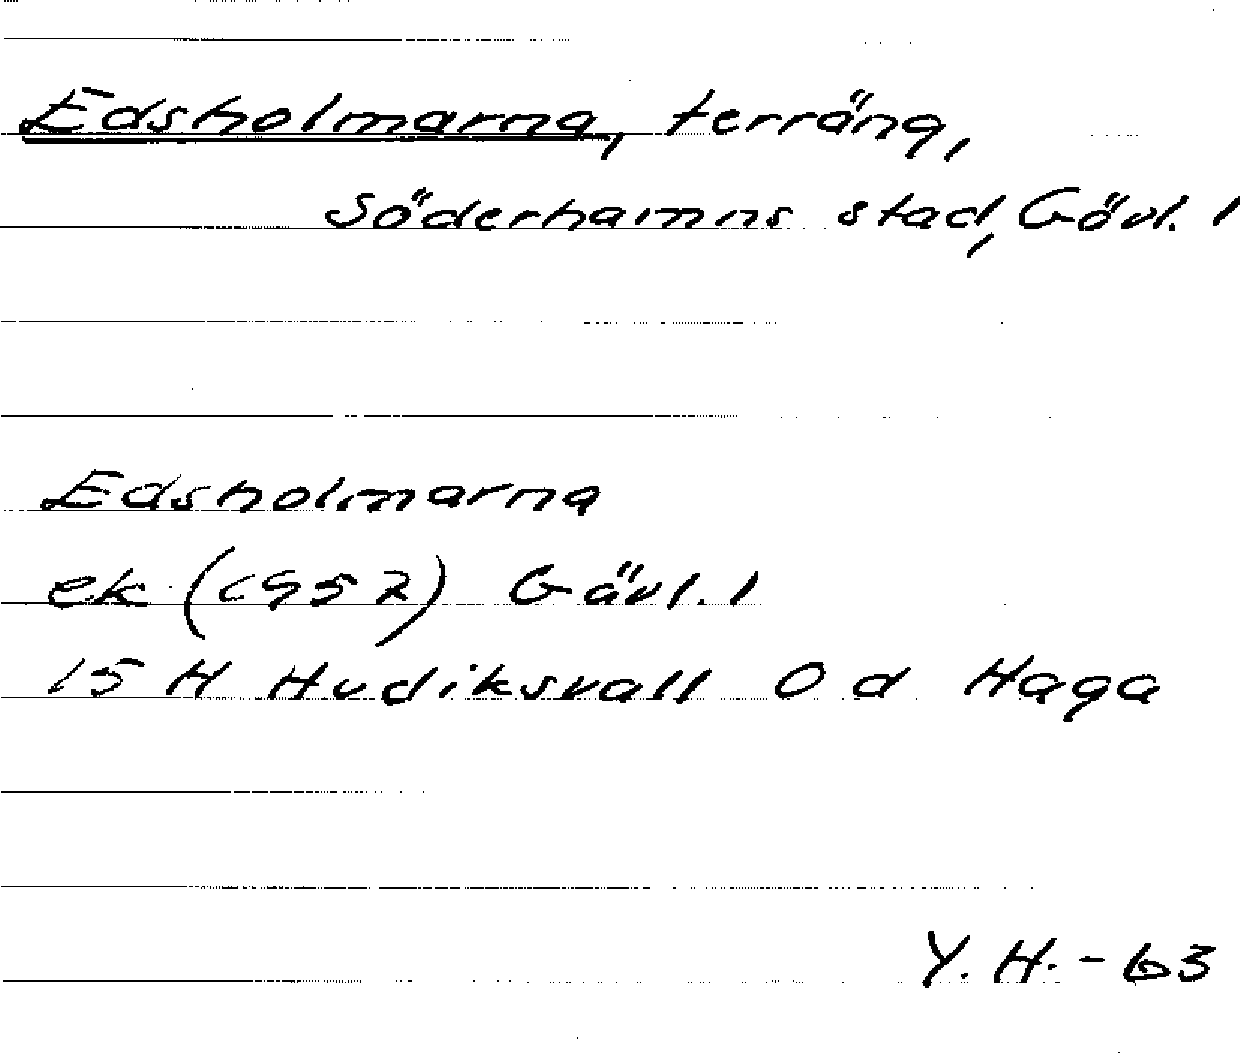 Edsholmarna, terräng,
Söderhamns stad, Gävl. l
Edsholmarna
ek (1952) Gävl. l
15 H Hudiksvall O d Haga
Y. H. - 63